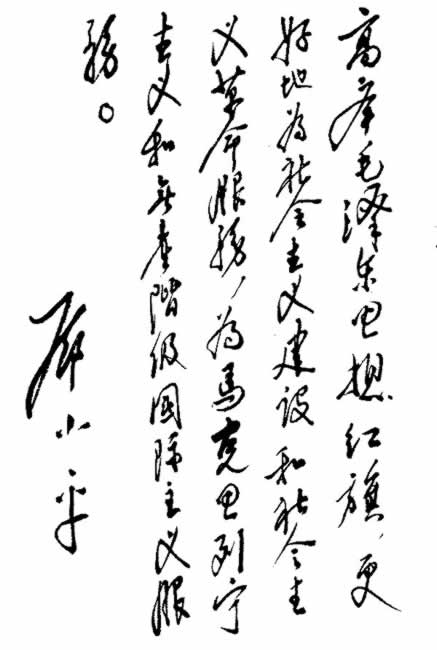 高举毛泽东思想红旗，更
好地为社会主义建设和社会主
义革命服务，为马克思列宁
主义和无产阶级国际主义服
务。
邓小平